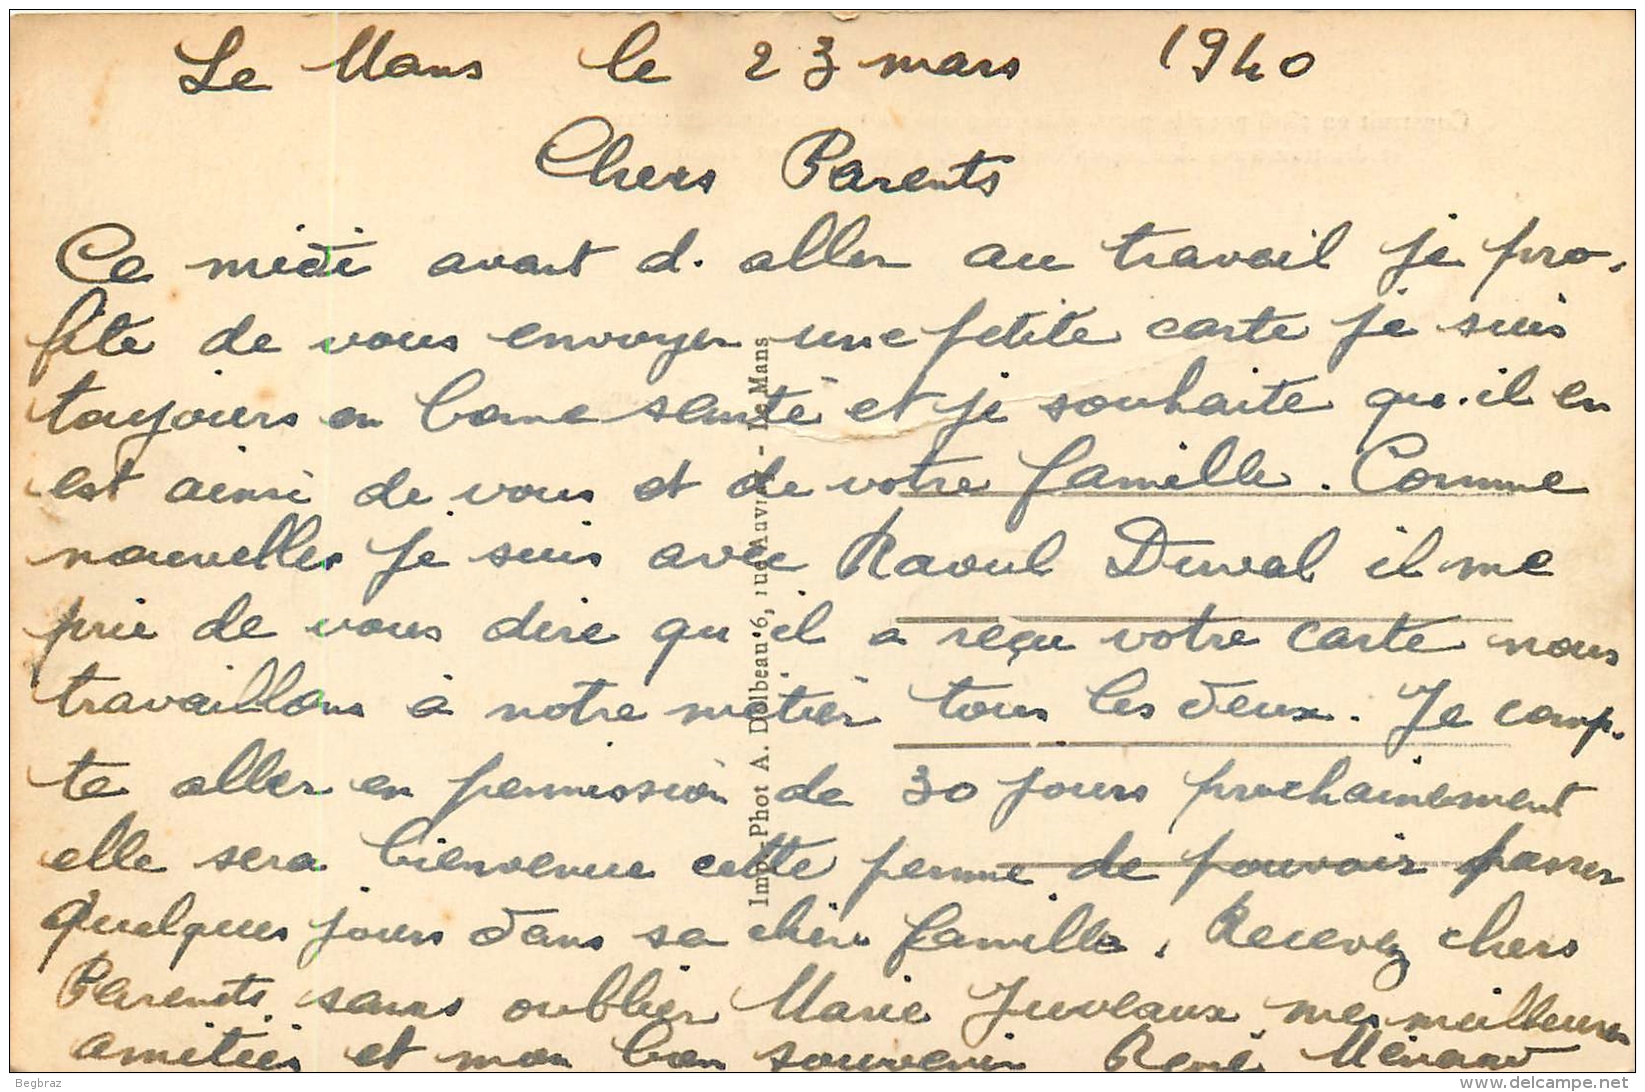 Le Mans le 23 mars 1940
Chers Parents
Ce midi avant d. aller au travail je pro-
fite de vous envoyer une petite carte je suis
toujours en bonne santé et je souhaite qu.il en
est ainsi de vous et de votre famille. Comme
nouvelles je suis avec Raoul Duval il me
prie de vous dire qu'il a reçu votre carte nous
travaillons à notre métier tous les deux. Je comp-
te aller en permission de 30 jours prochainement
elle sera bienvenue cette perme de pouvoir passer
quelques jours dans sa chère famille. Recevez chers
Parents, sans oublier Marie Juveaux, mes meilleures
amitiés et mon bon souvenir René
Imp. Phot A. Dolbeau 6, rue Auvray - Le Mans
Begbraz
delcampe.net